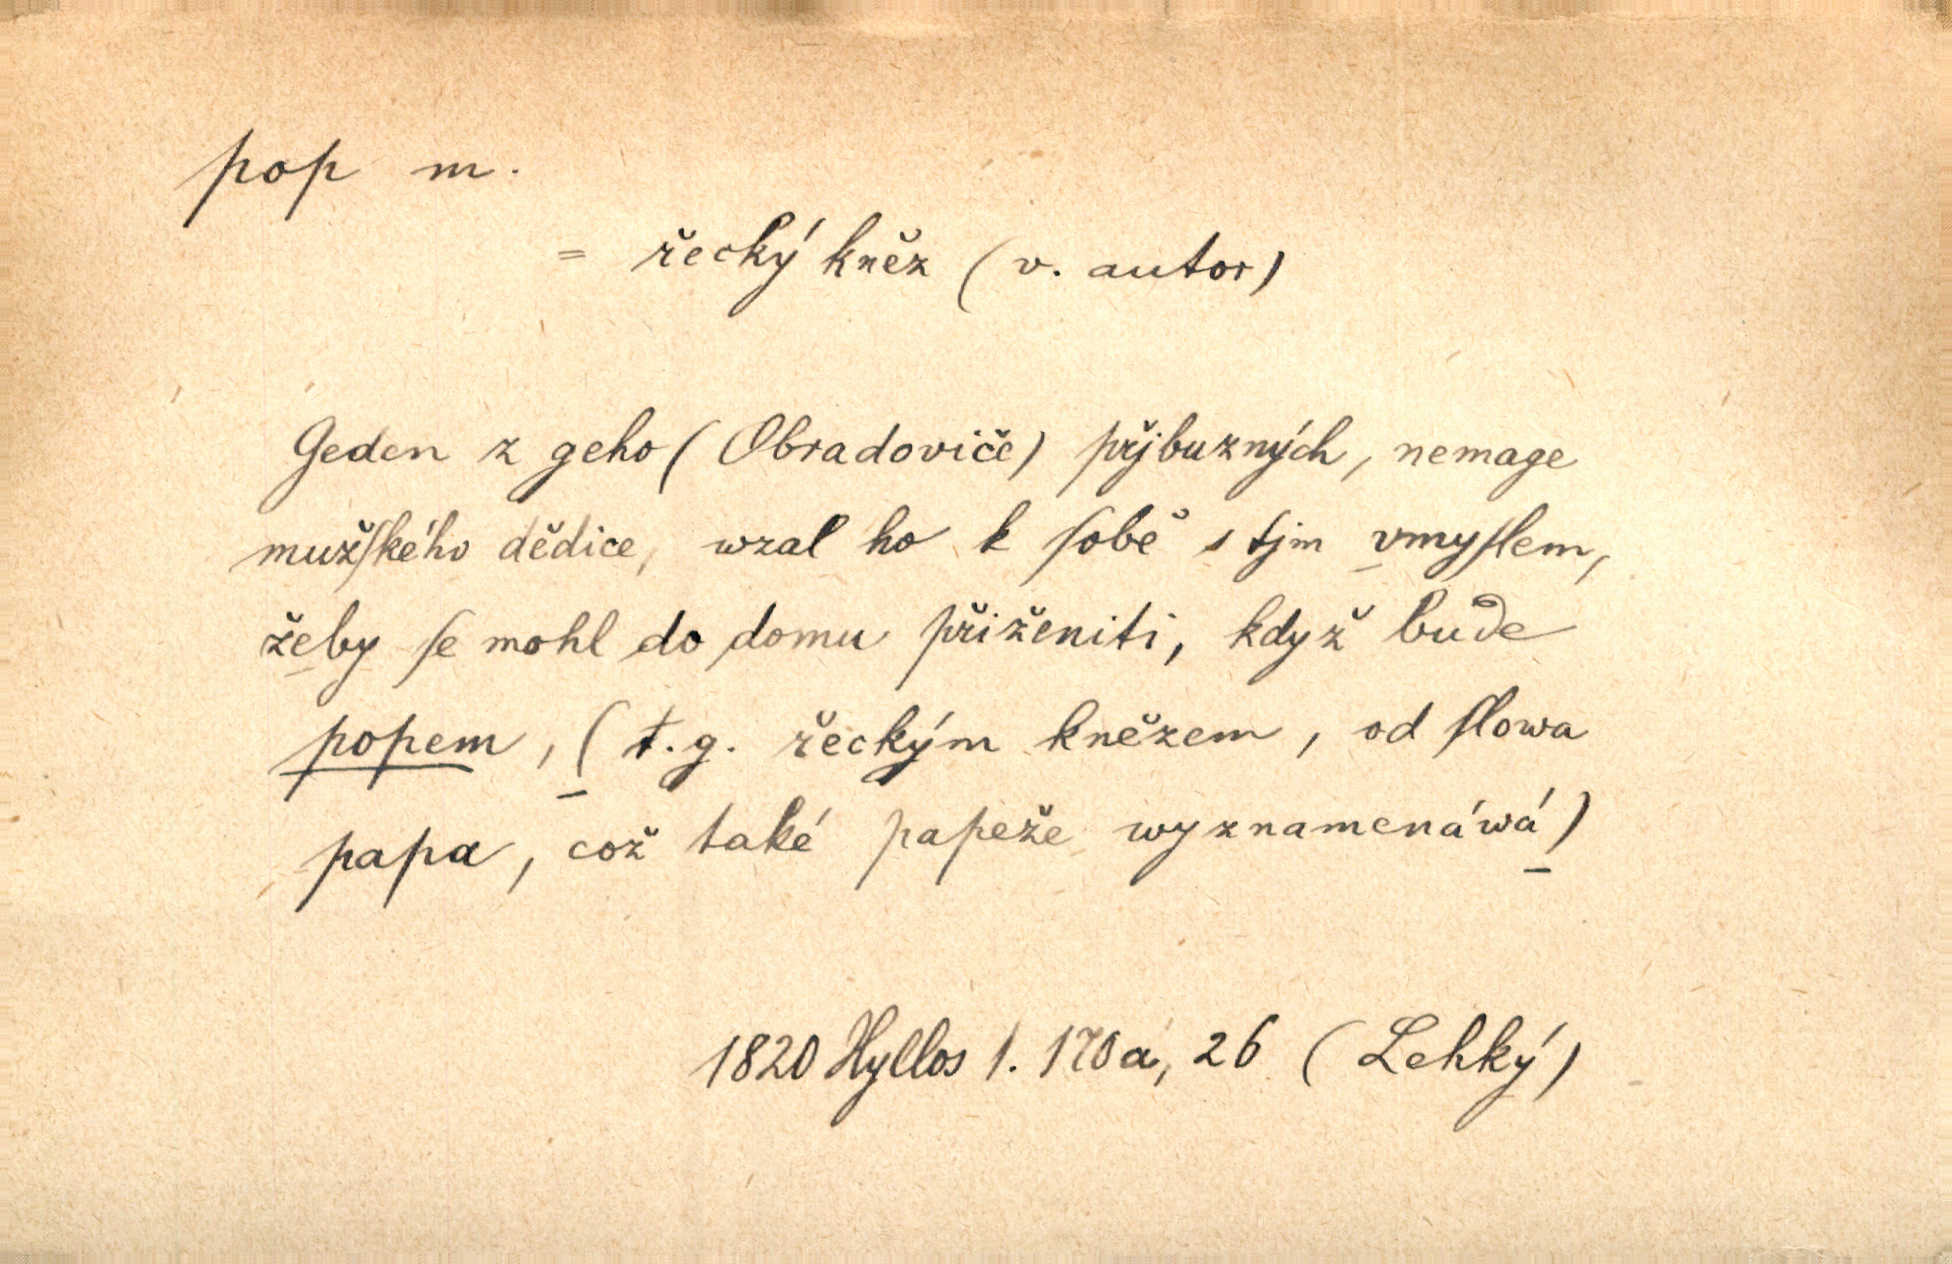 pop m.
= řecký kněz (v. autor)
Geden z geho (Obradoviče) přjbuzných, nemage
mužſkého dědice, wzal ho k ſobě s tjm vmyſlem,
žeby ſe mohl do domu přiženiti, když bude
popem, (t.g. řeckým knězem, od ſlowa
papa, což také papeže wyznamenáwá)
1820 Hyllos 1. 170a, 26 (Lehký)